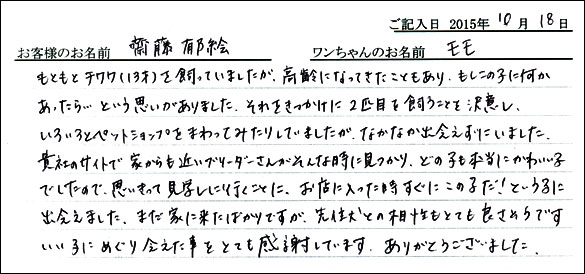 ご記入日 2015年 10 月 18 日
お客様のお名前 齋藤 郁絵 ワンちゃんのお名前 モモ
もともとチワワ(13才)を飼っていましたが、高齢になってきたこともあり、もしこの子に何か
あったら… という思いがありました。それをきっかけに 2匹目を飼うことを決意し、
いろいろとペットショップをまわってみたりしていましたが、なかなか出会えずにいました。
貴社のサイトで家からも近いブリーダーさんがそんな時に見つかり、どの子も本当にかわいい子
でしたので、思いきって見学しに行くことに。お店に入った時すぐにこの子だ!という子に
出会えました。まだ家に来たばかりですが、先住犬との相性もとても良さそうです
いい子にめぐり会えた事をとても感謝しています。ありがとうございました。